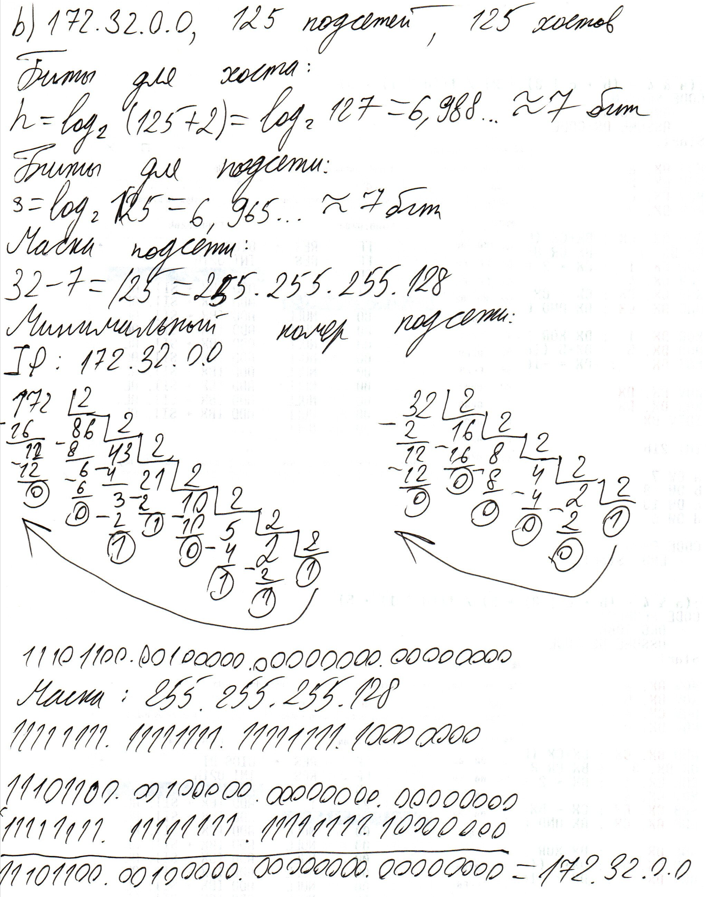 b) 172.32.0.0, 125 подсетей, 125 хостов
Биты для хоста:
h = log₂ (125+2) = log₂ 127 = 6,988... ≈ 7 бит
Биты для подсети:
s = log₂ 125 = 6,965... ≈ 7 бит
Маска подсети:
32-7 = /25 = 255.255.255.128
Минимальный номер подсети:
IP: 172.32.0.0
172 2 32 2
16 86 2 2 16 2
12 8 43 2 12 16 8 2
12 6 4 21 2 12 0 8 4 2
0 6 3 2 10 2 0 0 4 2 2
0 2 1 10 5 2 0 2 1
1 0 4 2 2 0
1 2 1
1
11101100.00100000.00000000.00000000
Маска: 255.255.255.128
11111111.11111111.11111111.10000000
11101100.00100000.00000000.00000000
11111111.11111111.11111111.10000000
11101100.00100000.00000000.00000000 = 172.32.0.0